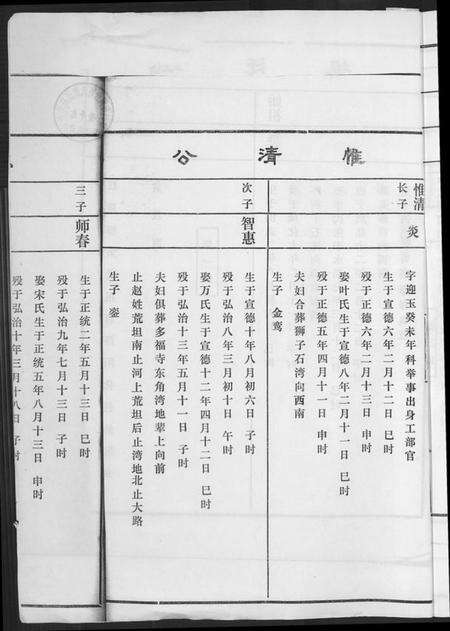 惟清公
惟清
长子
炎
字迎玉癸未年科举事出身工部官
生于宣德六年二月十二日 巳时
殁于正德六年二月十三日 申时
娶叶氏生于宣德八年二月十一日 巳时
殁于正德五年四月十一日 申时
夫妇合葬狮子石湾向西南
生子 金鸾
次子
智惠
生于宣德十年八月初六日 子时
殁于弘治八年三月初十日 午时
娶万氏生于宣德十二年四月十二日 巳时
殁于弘治十三年五月十一日 子时
夫妇俱葬多福寺东角湾地辈上向前
止赵姓荒坦南止河上荒坦后止湾地北止大路
生子 銮
三子
师春
生于正统二年五月十三日 巳时
殁于弘治九年七月十三日 子时
娶宋氏生于正统五年八月十三日 申时
殁于弘治十年三月十八日 子时